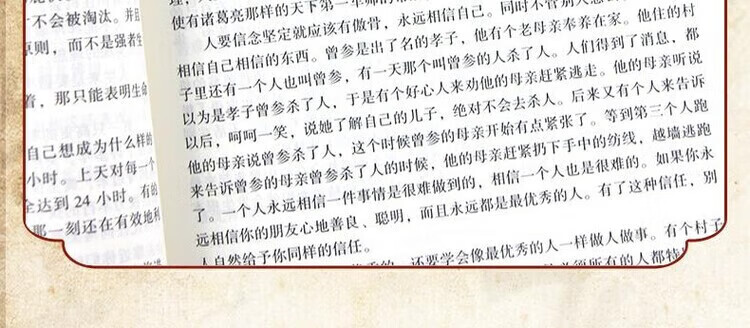 不会被淘汰。并且
原则,而不是强者
着,那只能表明生命
自己想成为什么样的
小时。上天对每一个
全达到 24 小时。有的
那一刻还在有效地利
使有诸葛亮那样的天下第一军师的
人要信念坚定就应该有傲骨,永远相信自己。同时不管别人怎么
相信自己相信的东西。曾参是出了名的孝子,他有个老母亲奉养在家。他住的村
子里还有一个人也叫曾参,有一天那个叫曾参的人杀了人。人们得到了消息,都
以为是孝子曾参杀了人,于是有个好心人来劝他的母亲赶紧逃走。他的母亲听说
以后,呵呵一笑,说她了解自己的儿子,绝对不会去杀人。后来又有个人来告诉
他的母亲说曾参杀了人,这个时候曾参的母亲开始有点紧张了。等到第三个人跑
来告诉曾参的母亲曾参杀了人的时候,他的母亲赶紧扔下手中的纺线,越墙逃跑
了。一个人永远相信一件事情是很难做到的,相信一个人也是很难的。如果你永
远相信你的朋友心地善良、聪明,而且永远都是最优秀的人。有了这种信任,别
人自然给予你同样的信任。
还要学会像最优秀的人一样做人做事。有个村子
所有的人都特